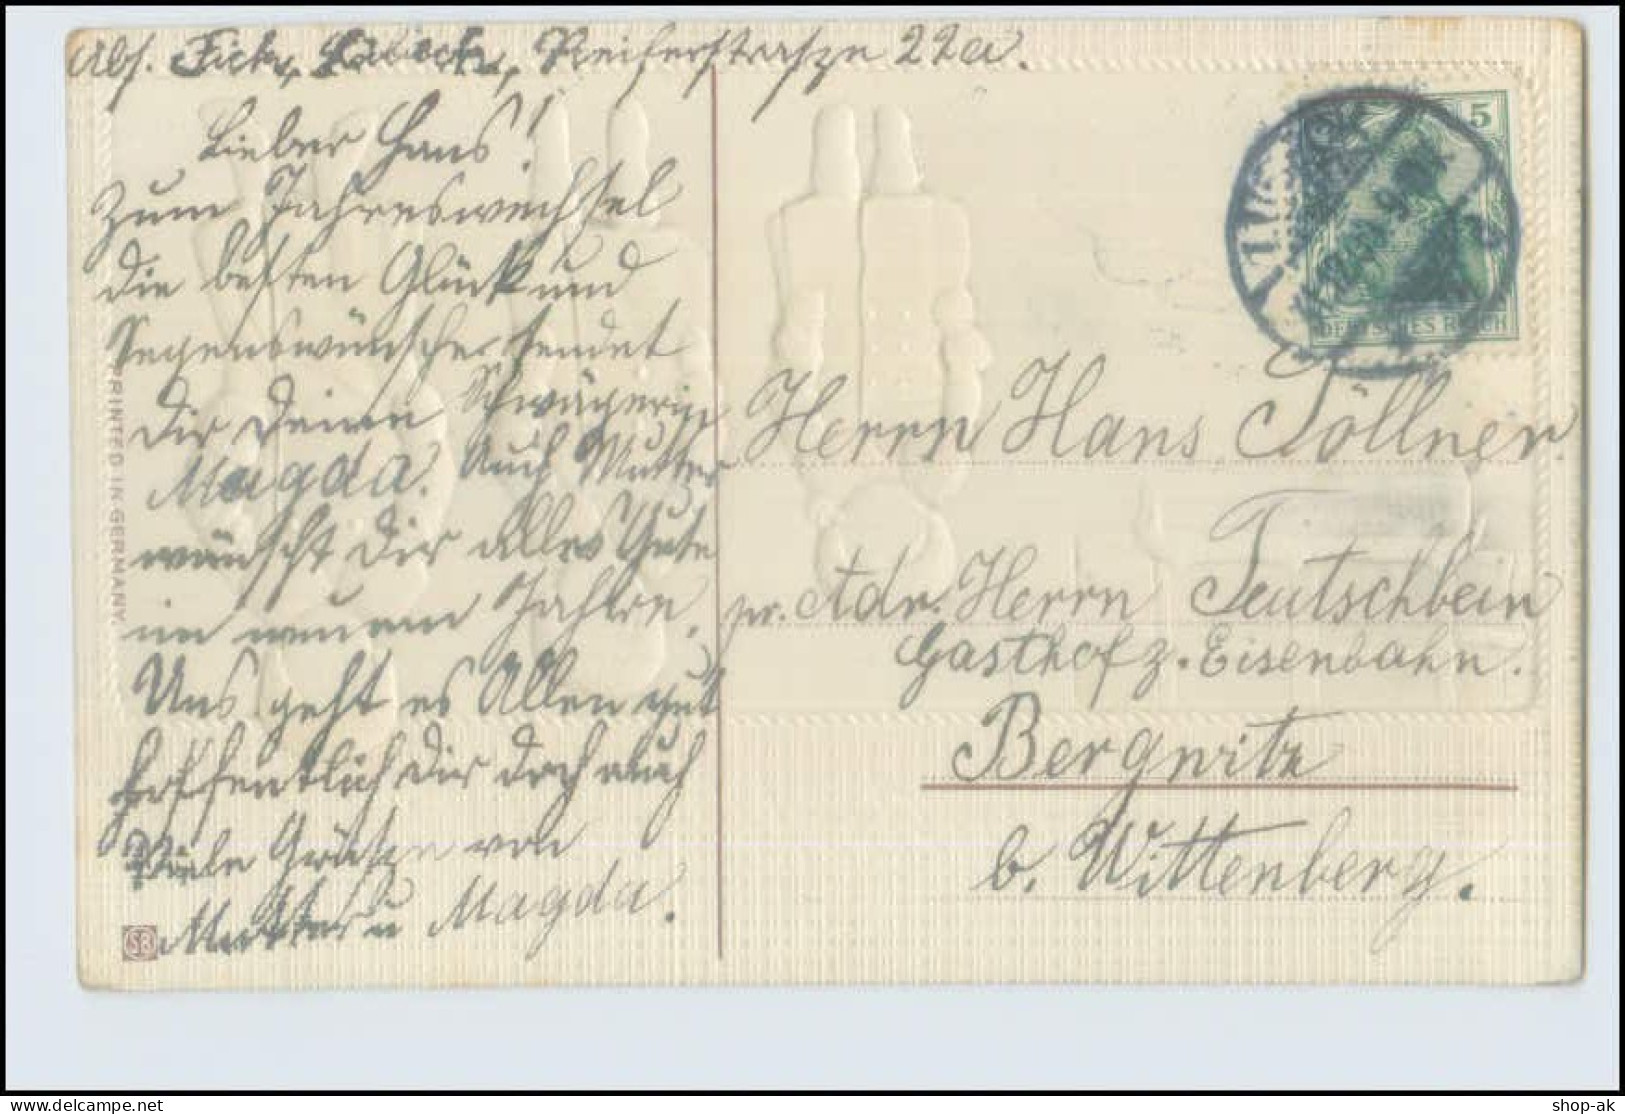 Abs. Fick, Lübeck, Reiferstrasze 22a.
Lieber Hans!
Zum Jahreswechsel
die besten Glück und
Segenswünsche sendet
dir Deine Schwägerin
Magda. Auch Mutter
wünscht dir alles Gute
im neuen Jahre.
Uns geht es Allen gut
hoffentlich dir doch auch
Viele Grüsze von
Mutter u Magda.
PRINTED IN GERMANY
SB
5
DEUTSCHES REICH
LÜBECK
Herrn Hans Töllner
pr. Adr. Herrn Teutschbein
Gasthof z. Eisenbahn.
Bergwitz
b. Wittenberg.
shop-ak